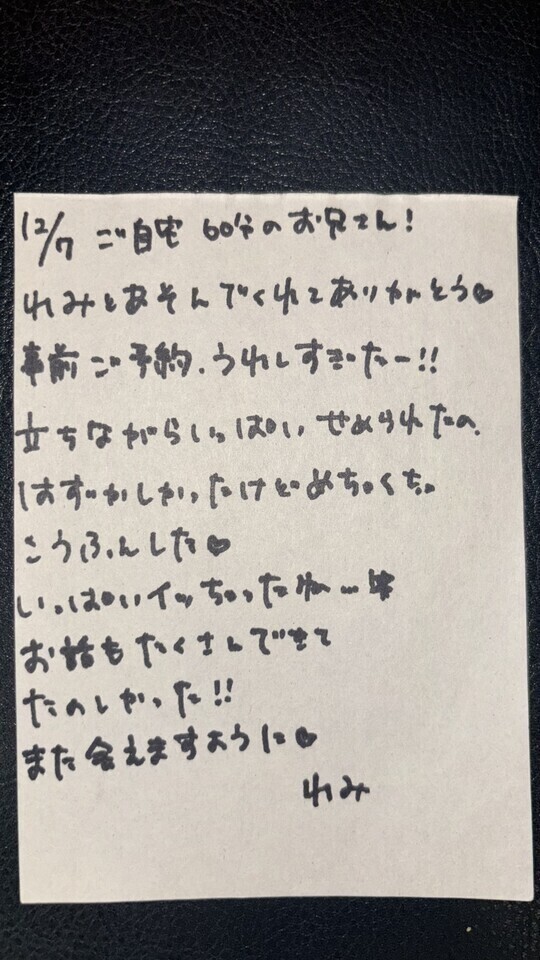 12/7 ご自宅 60分のお兄さん!
れみとあそんでくれてありがとう♡
事前ご予約、うれしすぎたー!!
立ちながらいっぱいせめられたの、
はずかしかったけどめちゃくちゃ
こうふんした♡
いっぱいイッちゃったね…
お話もたくさんできて
たのしかった!!
また会えますように♡
れみ